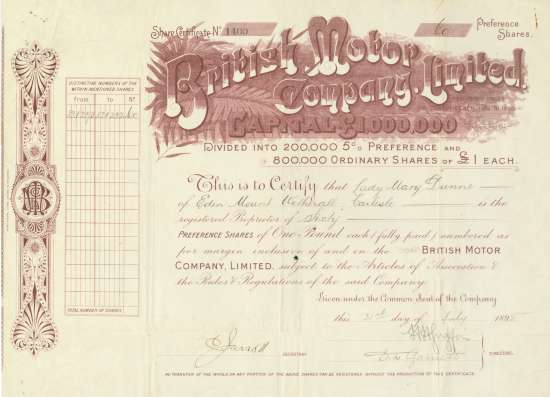 Share Certificate No 1400
60 Preference Shares.
British Motor
Company, Limited.
CAPITAL £1,000,000
DIVIDED INTO 200,000 5% PREFERENCE AND
800,000 ORDINARY SHARES OF £1 EACH.
DISTINCTIVE NUMBERS OF THE
WITHIN-MENTIONED SHARES
From to No
TOTAL NUMBER OF SHARES
This is to Certify that Lady Mary Dunne
of Eden Mount Wetheral, Carlisle is the
registered Proprietor of Sixty
PREFERENCE SHARES of One Pound each (fully paid) numbered as
per margin inclusive of and in the BRITISH MOTOR
COMPANY, LIMITED. subject to the Articles of Association &
the Rules & Regulations of the said Company.
Given under the Common Seal of the Company
this 21st day of July 189
SECRETARY
DIRECTORS.
NO TRANSFER OF THE WHOLE OR ANY PORTION OF THE ABOVE SHARES CAN BE REGISTERED WITHOUT THE PRODUCTION OF THIS CERTIFICATE.